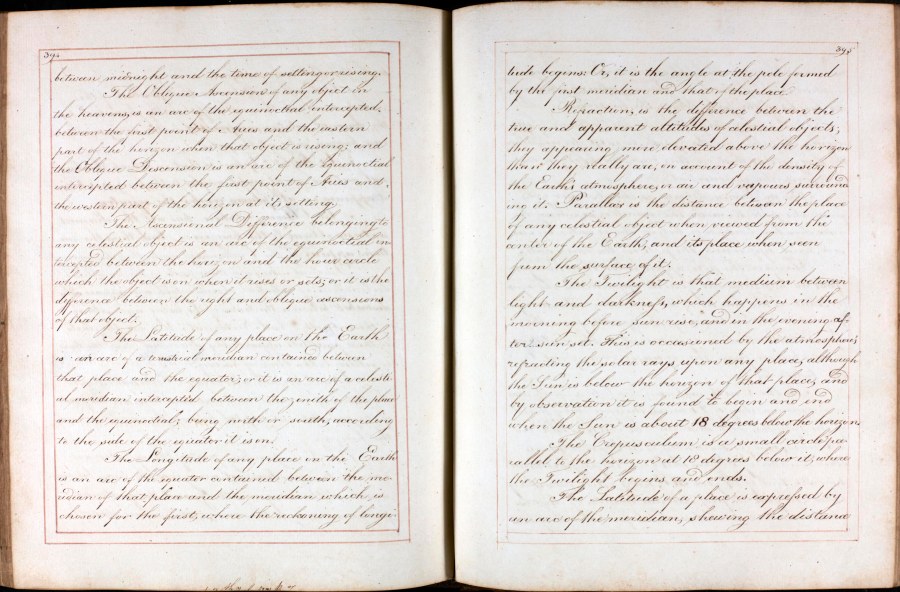 394
between midnight and the time of setting or rising.
The Oblique Ascension of any object in
the heavens, is an arc of the equinoctial intercepted,
between the first point of Aries and the eastern
part of the horizon when that object is rising; and
the Oblique Descension is an arc of the equinoctial
intercepted between the first point of Aries and
the western part of the horizon at its setting.
The Ascensional Difference belonging to
any celestial object is an arc of the equinoctial in
tercepted between the horizon and the hour circle
which the object is on when it rises or sets; or it is the
difference between the right and oblique ascensions
of that object.
The Latitude of any place on the Earth
is an arc of a terrestrial meridian contained between
that place and the equator; or it is an arc of a celesti
al meridian intercepted between the zenith of the place
and the equinoctial; being north or south, according
to the side of the equator it is on.
The Longitude of any place on the Earth
is an arc of the equator contained between the me
ridian of that place and the meridian which is
chosen for the first, where the reckoning of longi
395
tude begins: Or, it is the angle at the pole formed
by the first meridian and that of the place.
Refraction, is the difference between the
true and apparent altitudes of celestial objects;
they appearing more elevated above the horizon
than they really are, on account of the density of
the Earth's atmosphere, or air and vapours surround
ing it. Parallax is the distance between the place
of any celestial object when viewed from the
center of the Earth, and its place when seen
from the surface of it.
The Twilight is that medium between
light and darkness, which happens in the
morning before sun rise, and in the evening af-
ter sun set. This is occasioned by the atmosphere's
refracting the solar rays upon any place, although
the Sun is below the horizon of that place, and
by observation it is found to begin and end
when the Sun is about 18 degrees below the horizon.
The Crepusculum is a small circle pa-
rallel to the horizon at 18 degrees below it, where
the Twilight begins and ends.
The Latitude of a place is expressed by
an arc of the meridian, shewing the distance